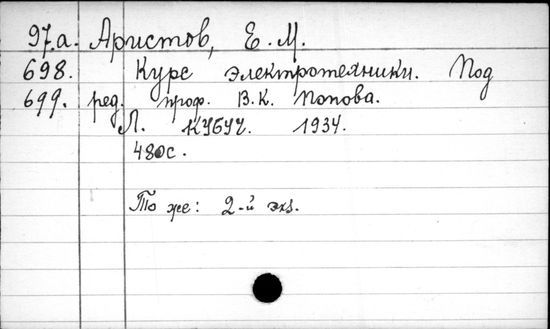 97.а. Аристов, Е. М.
698. Курс электротехники. Под
699. ред. проф. В.К. Попова.
Л. КУБУЧ. 1934.
480с.
То же: 2-й экз.